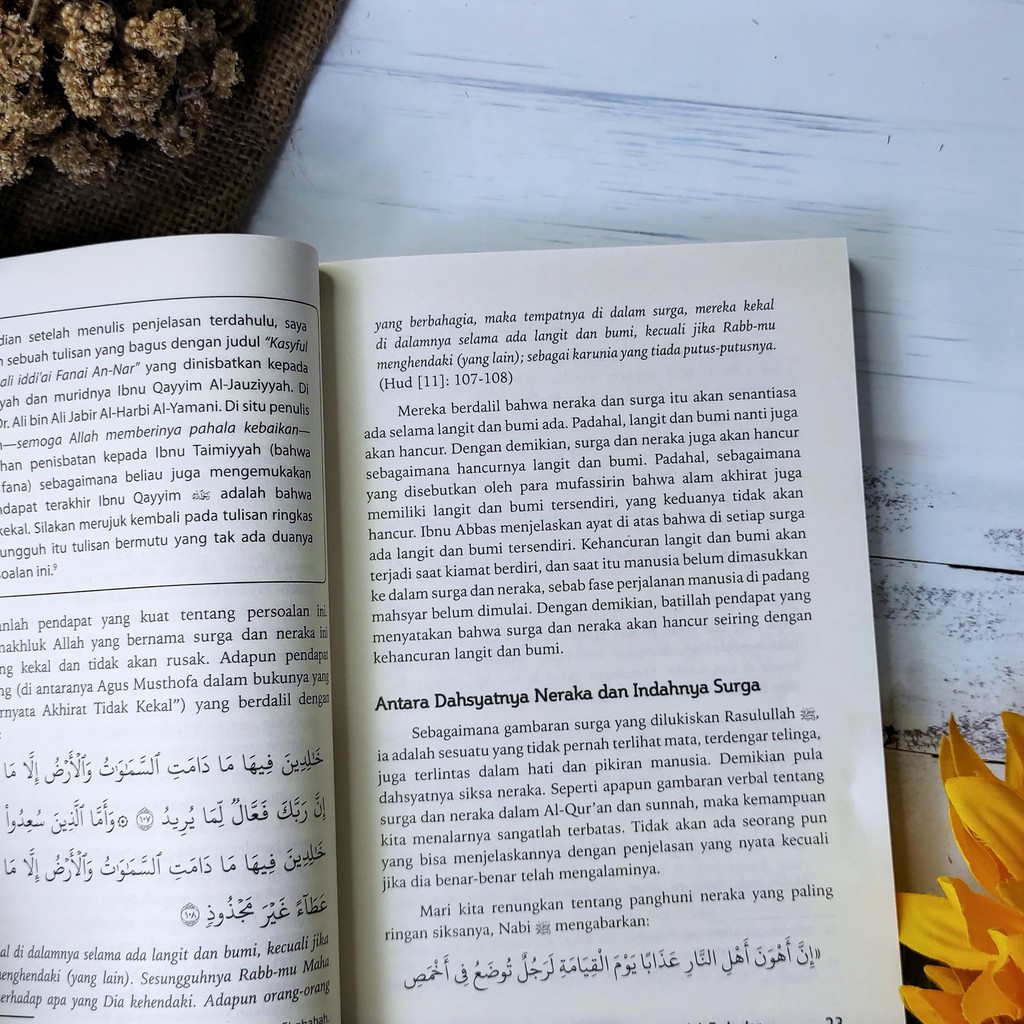 dian setelah menulis penjelasan terdahulu, saya
sebuah tulisan yang bagus dengan judul “Kasyful
ali iddi’ai Fanai An-Nar” yang dinisbatkan kepada
yah dan muridnya Ibnu Qayyim Al-Jauziyyah. Di
Dr. Ali bin Ali Jabir Al-Harbi Al-Yamani. Di situ penulis
—semoga Allah memberinya pahala kebaikan—
han penisbatan kepada Ibnu Taimiyyah (bahwa
fana) sebagaimana beliau juga mengemukakan
ndapat terakhir Ibnu Qayyim adalah bahwa
kekal. Silakan merujuk kembali pada tulisan ringkas
ungguh itu tulisan bermutu yang tak ada duanya
soalan ini.⁹
nlah pendapat yang kuat tentang persoalan ini.
makhluk Allah yang bernama surga dan neraka ini
ng kekal dan tidak akan rusak. Adapun pendapat
ng (di antaranya Agus Musthofa dalam bukunya yang
rnyata Akhirat Tidak Kekal”) yang berdalil dengan
:
خَٰلِدِينَ فِيهَا مَا دَامَتِ ٱلسَّمَٰوَٰتُ وَٱلْأَرْضُ إِلَّا مَا
إِنَّ رَبَّكَ فَعَّالٌ لِّمَا يُرِيدُ ١٠٧ ۞ وَأَمَّا ٱلَّذِينَ سُعِدُوا۟
خَٰلِدِينَ فِيهَا مَا دَامَتِ ٱلسَّمَٰوَٰتُ وَٱلْأَرْضُ إِلَّا مَا
عَطَآءً غَيْرَ مَجْذُوذٍ ١٠٨
al di dalamnya selama ada langit dan bumi, kecuali jika
menghendaki (yang lain). Sesungguhnya Rabb-mu Maha
terhadap apa yang Dia kehendaki. Adapun orang-orang
yang berbahagia, maka tempatnya di dalam surga, mereka kekal
di dalamnya selama ada langit dan bumi, kecuali jika Rabb-mu
menghendaki (yang lain); sebagai karunia yang tiada putus-putusnya.
(Hud [11]: 107-108)
Mereka berdalil bahwa neraka dan surga itu akan senantiasa
ada selama langit dan bumi ada. Padahal, langit dan bumi nanti juga
akan hancur. Dengan demikian, surga dan neraka juga akan hancur
sebagaimana hancurnya langit dan bumi. Padahal, sebagaimana
yang disebutkan oleh para mufassirin bahwa alam akhirat juga
memiliki langit dan bumi tersendiri, yang keduanya tidak akan
hancur. Ibnu Abbas menjelaskan ayat di atas bahwa di setiap surga
ada langit dan bumi tersendiri. Kehancuran langit dan bumi akan
terjadi saat kiamat berdiri, dan saat itu manusia belum dimasukkan
ke dalam surga dan neraka, sebab fase perjalanan manusia di padang
mahsyar belum dimulai. Dengan demikian, batillah pendapat yang
menyatakan bahwa surga dan neraka akan hancur seiring dengan
kehancuran langit dan bumi.
Antara Dahsyatnya Neraka dan Indahnya Surga
Sebagaimana gambaran surga yang dilukiskan Rasulullah ﷺ,
ia adalah sesuatu yang tidak pernah terlihat mata, terdengar telinga,
juga terlintas dalam hati dan pikiran manusia. Demikian pula
dahsyatnya siksa neraka. Seperti apapun gambaran verbal tentang
surga dan neraka dalam Al-Qur’an dan sunnah, maka kemampuan
kita menalarnya sangatlah terbatas. Tidak akan ada seorang pun
yang bisa menjelaskannya dengan penjelasan yang nyata kecuali
jika dia benar-benar telah mengalaminya.
Mari kita renungkan tentang panghuni neraka yang paling
ringan siksanya, Nabi ﷺ mengabarkan:
«إِنَّ أَهْوَنَ أَهْلِ النَّارِ عَذَابًا يَوْمَ الْقِيَامَةِ لَرَجُلٌ تُوضَعُ فِى أَخْمَصِ